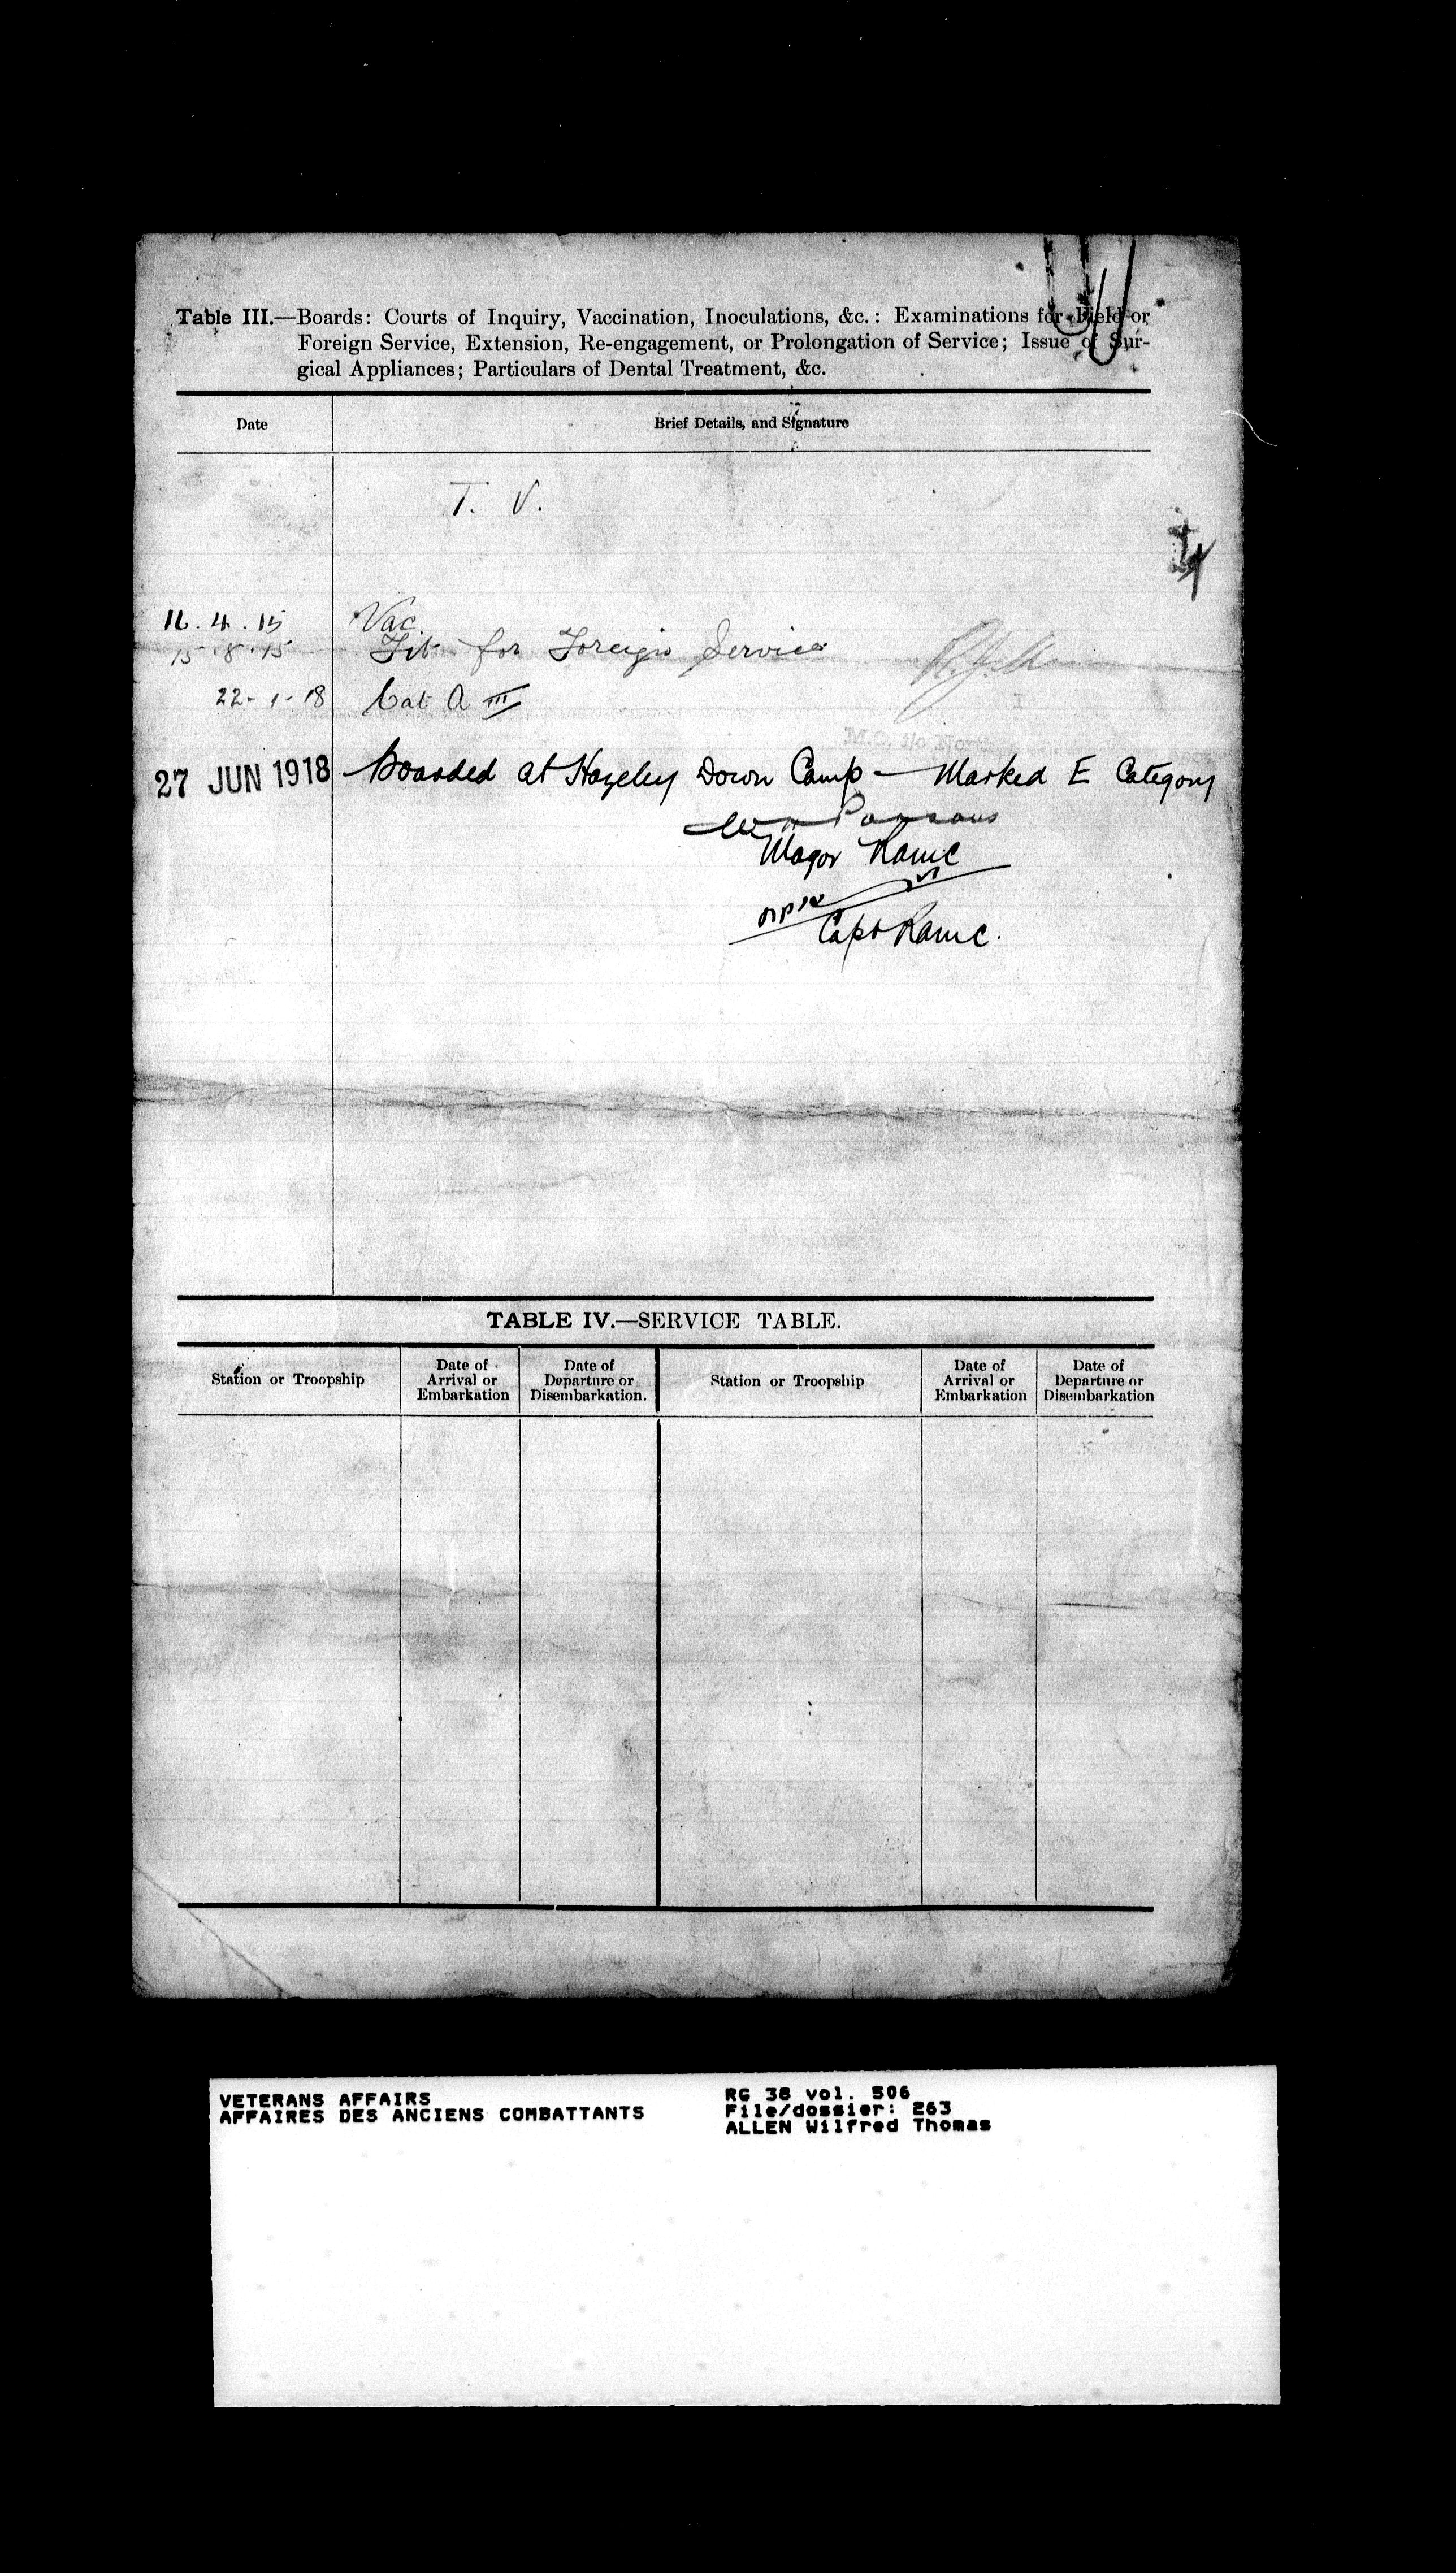 Table III.—Boards: Courts of Inquiry, Vaccination, Inoculations, &c.: Examinations for Field or
Foreign Service, Extension, Re-engagement, or Prolongation of Service; Issue of Sur-
gical Appliances; Particulars of Dental Treatment, &c.
Date Brief Details, and Signature
T. V.
16.4.15 Vac.
15.8.15 Fit for Foreign Service
22-1-18 Cat A III
27 JUN 1918 Boarded at Hazeley Down Camp — Marked E Category
Parsons
Major RAMC
Capt RAMC.
TABLE IV.—SERVICE TABLE.
Station or Troopship Date of Arrival or Embarkation Date of Departure or Disembarkation. Station or Troopship Date of Arrival or Embarkation Date of Departure or Disembarkation
VETERANS AFFAIRS
AFFAIRES DES ANCIENS COMBATTANTS
RG 38 vol. 506
File/dossier: 263
ALLEN Wilfred Thomas